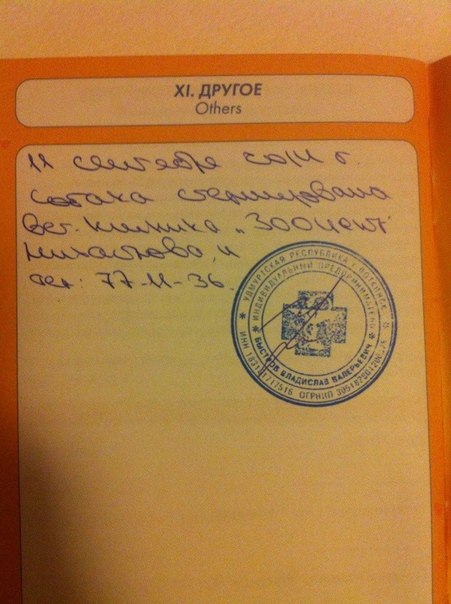 XI. ДРУГОЕ
Others
11 сентября 2011 г.
Собака стерилизована
Вет. клиника „Зооцент"
тел: 77-11-36.
УДМУРТСКАЯ РЕСПУБЛИКА Г. ВОТКИНСК
ИНДИВИДУАЛЬНЫЙ ПРЕДПРИНИМАТЕЛЬ
БЫСТРОВ ВЛАДИСЛАВ ВАЛЕРЬЕВИЧ
ИНН
ОГРНИП